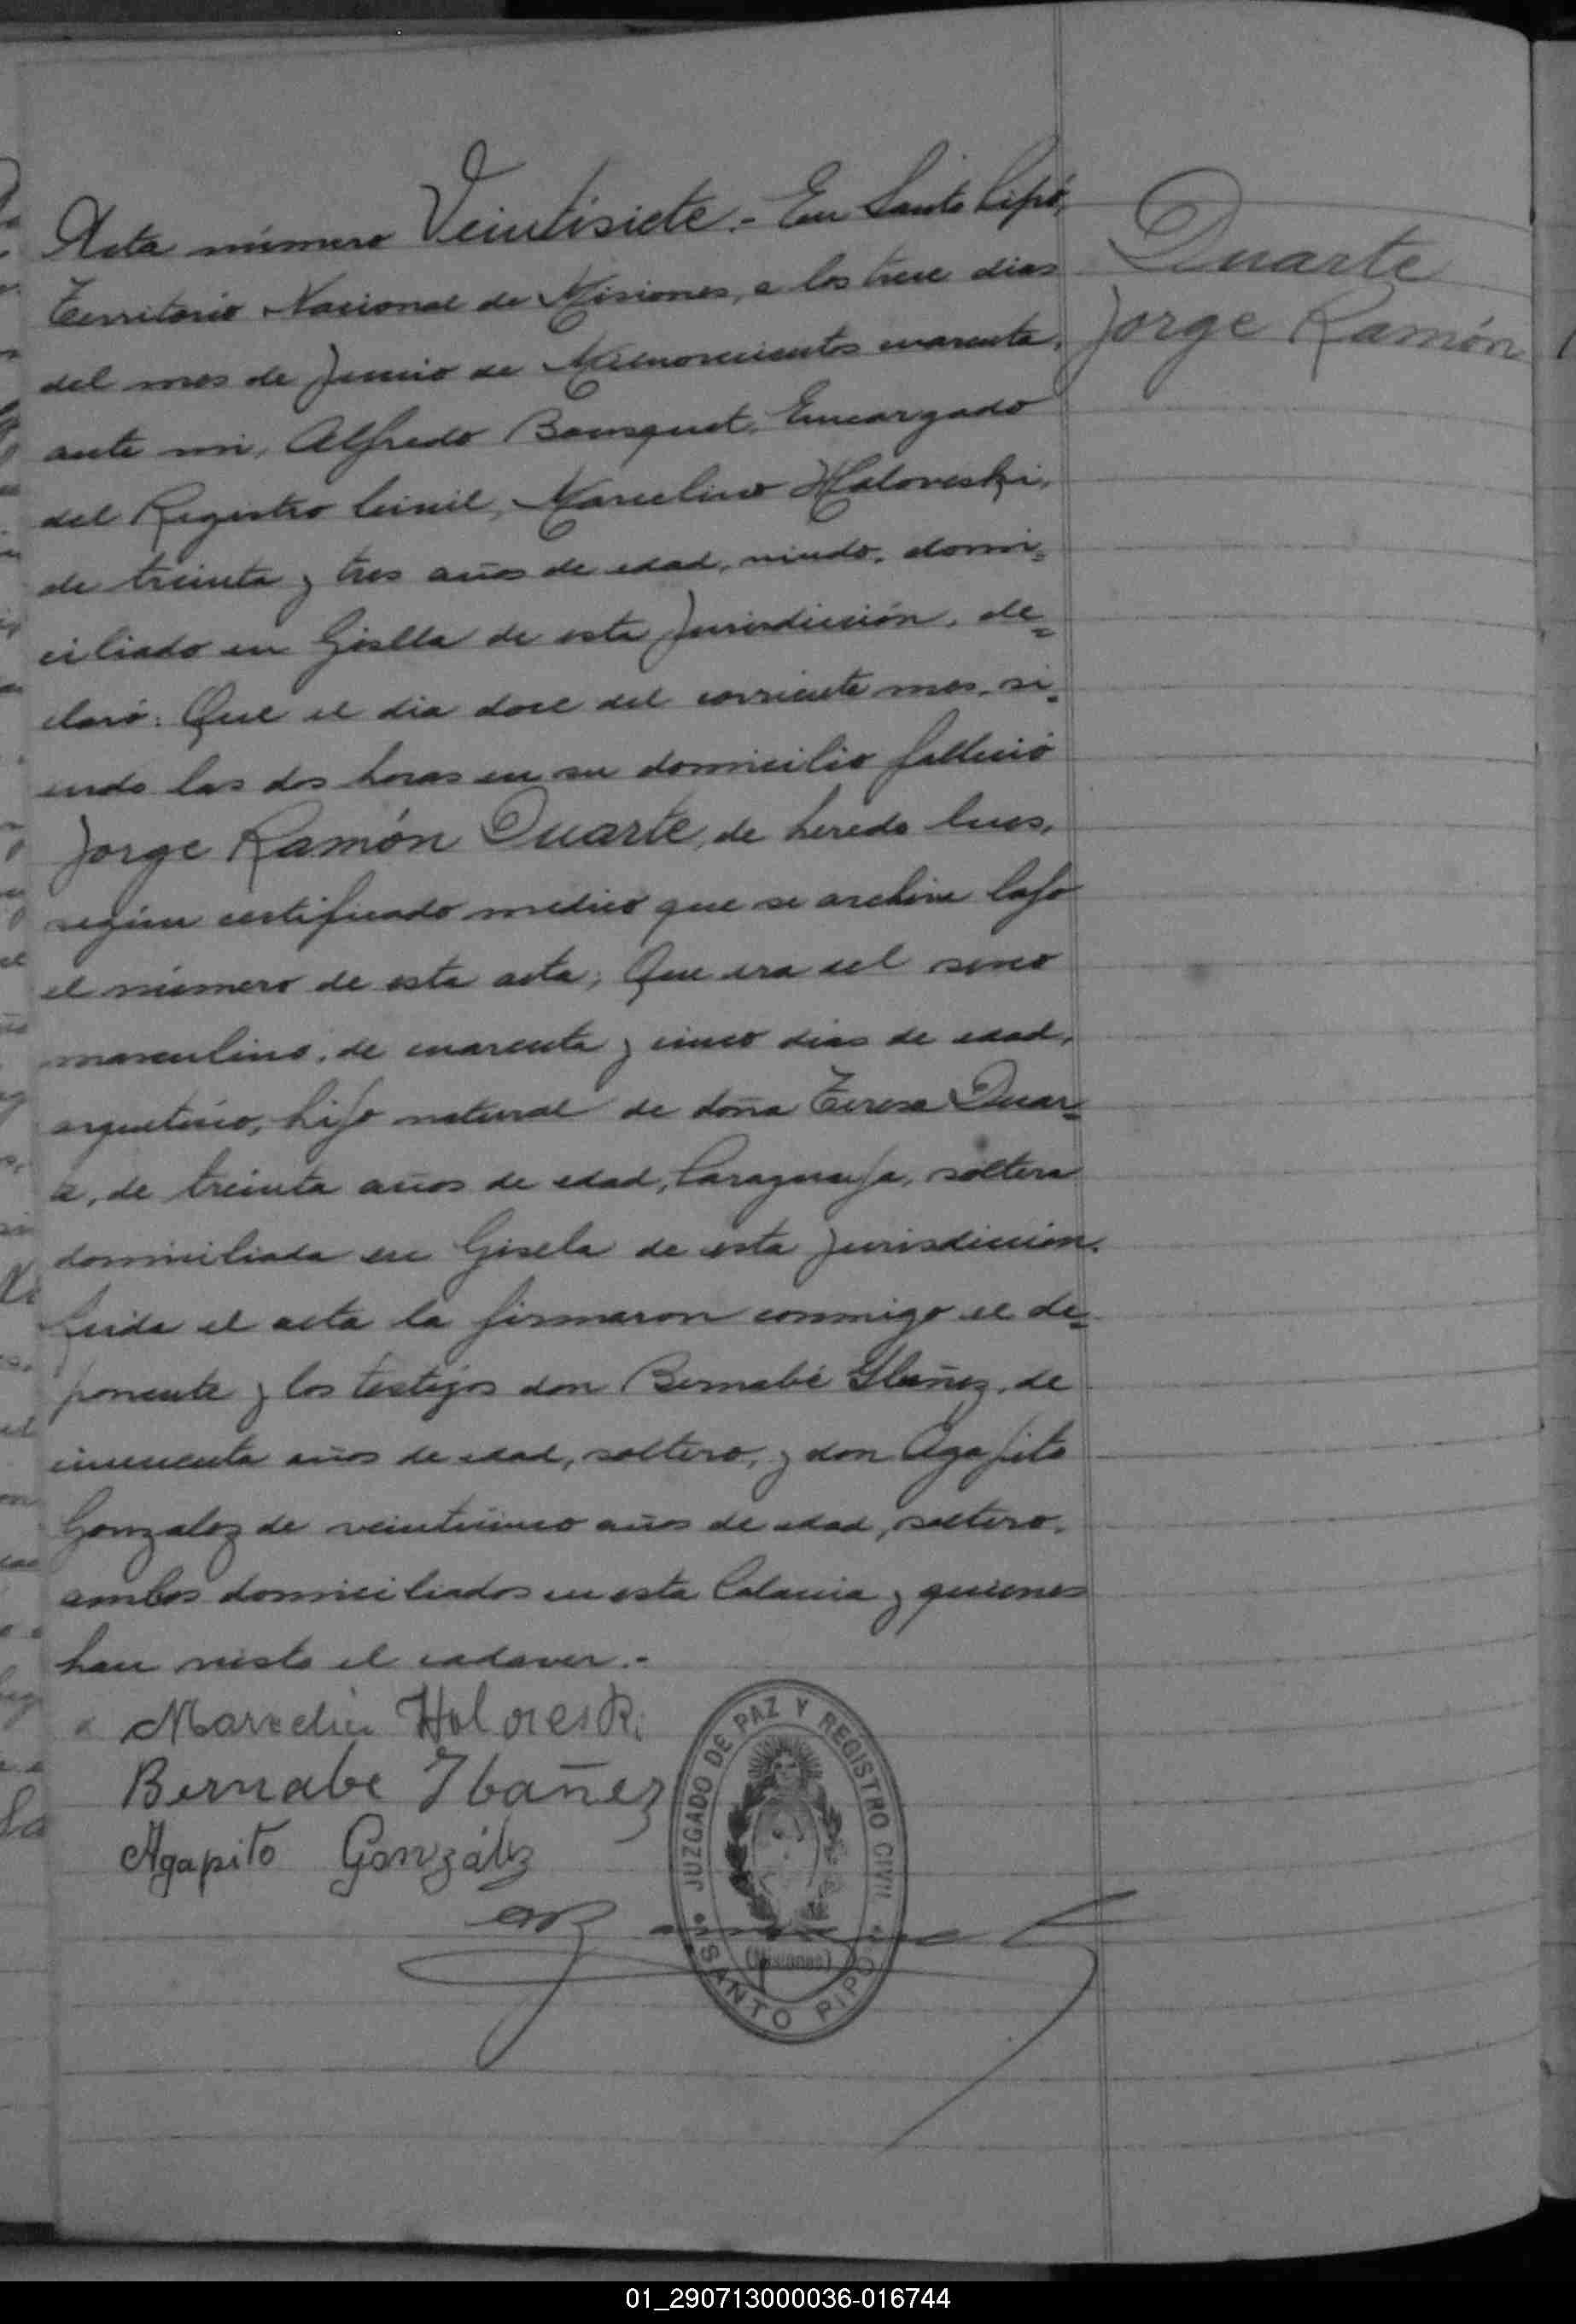 Acta número Veintisiete.- En Santo Pipó,
Territorio Nacional de Misiones, a los trece dias
del mes de Junio de Milnovecientos cuarenta,
ante mi, Alfredo Bousquet, Encargado
del Registro Civil, Marcelino Holoveski,
de treinta y tres años de edad, viudo, domi=
ciliado en Gisella de esta Jurisdicción, de=
claró: Que el dia doce del corriente mes, si=
endo las dos horas en su domicilio falleció
Jorge Ramón Duarte, de heredo lues,
según certificado medico que se archiva bajo
el número de esta acta; Que era del sexo
masculino, de cuarenta y cinco dias de edad,
argentino, hijo natural de doña Teresa Duar=
te, de treinta años de edad, Paraguaya, soltera
domiciliada en Gisela de esta Jurisdicción.
Leida el acta la firmaron conmigo el de=
ponente y los testigos don Bernabé Ybañez, de
cincuenta años de edad, soltero, y don Agapito
Gonzalez de veinticinco años de edad, soltero,
ambos domiciliados en esta Colonia y quienes
han visto el cadaver.-
Duarte
Jorge Ramón
Marcelin Holoveski
Bernabe Ybañez
Agapito González
JUZGADO DE PAZ Y REGISTRO CIVIL
(Misiones)
SANTO PIPO
01_290713000036-016744